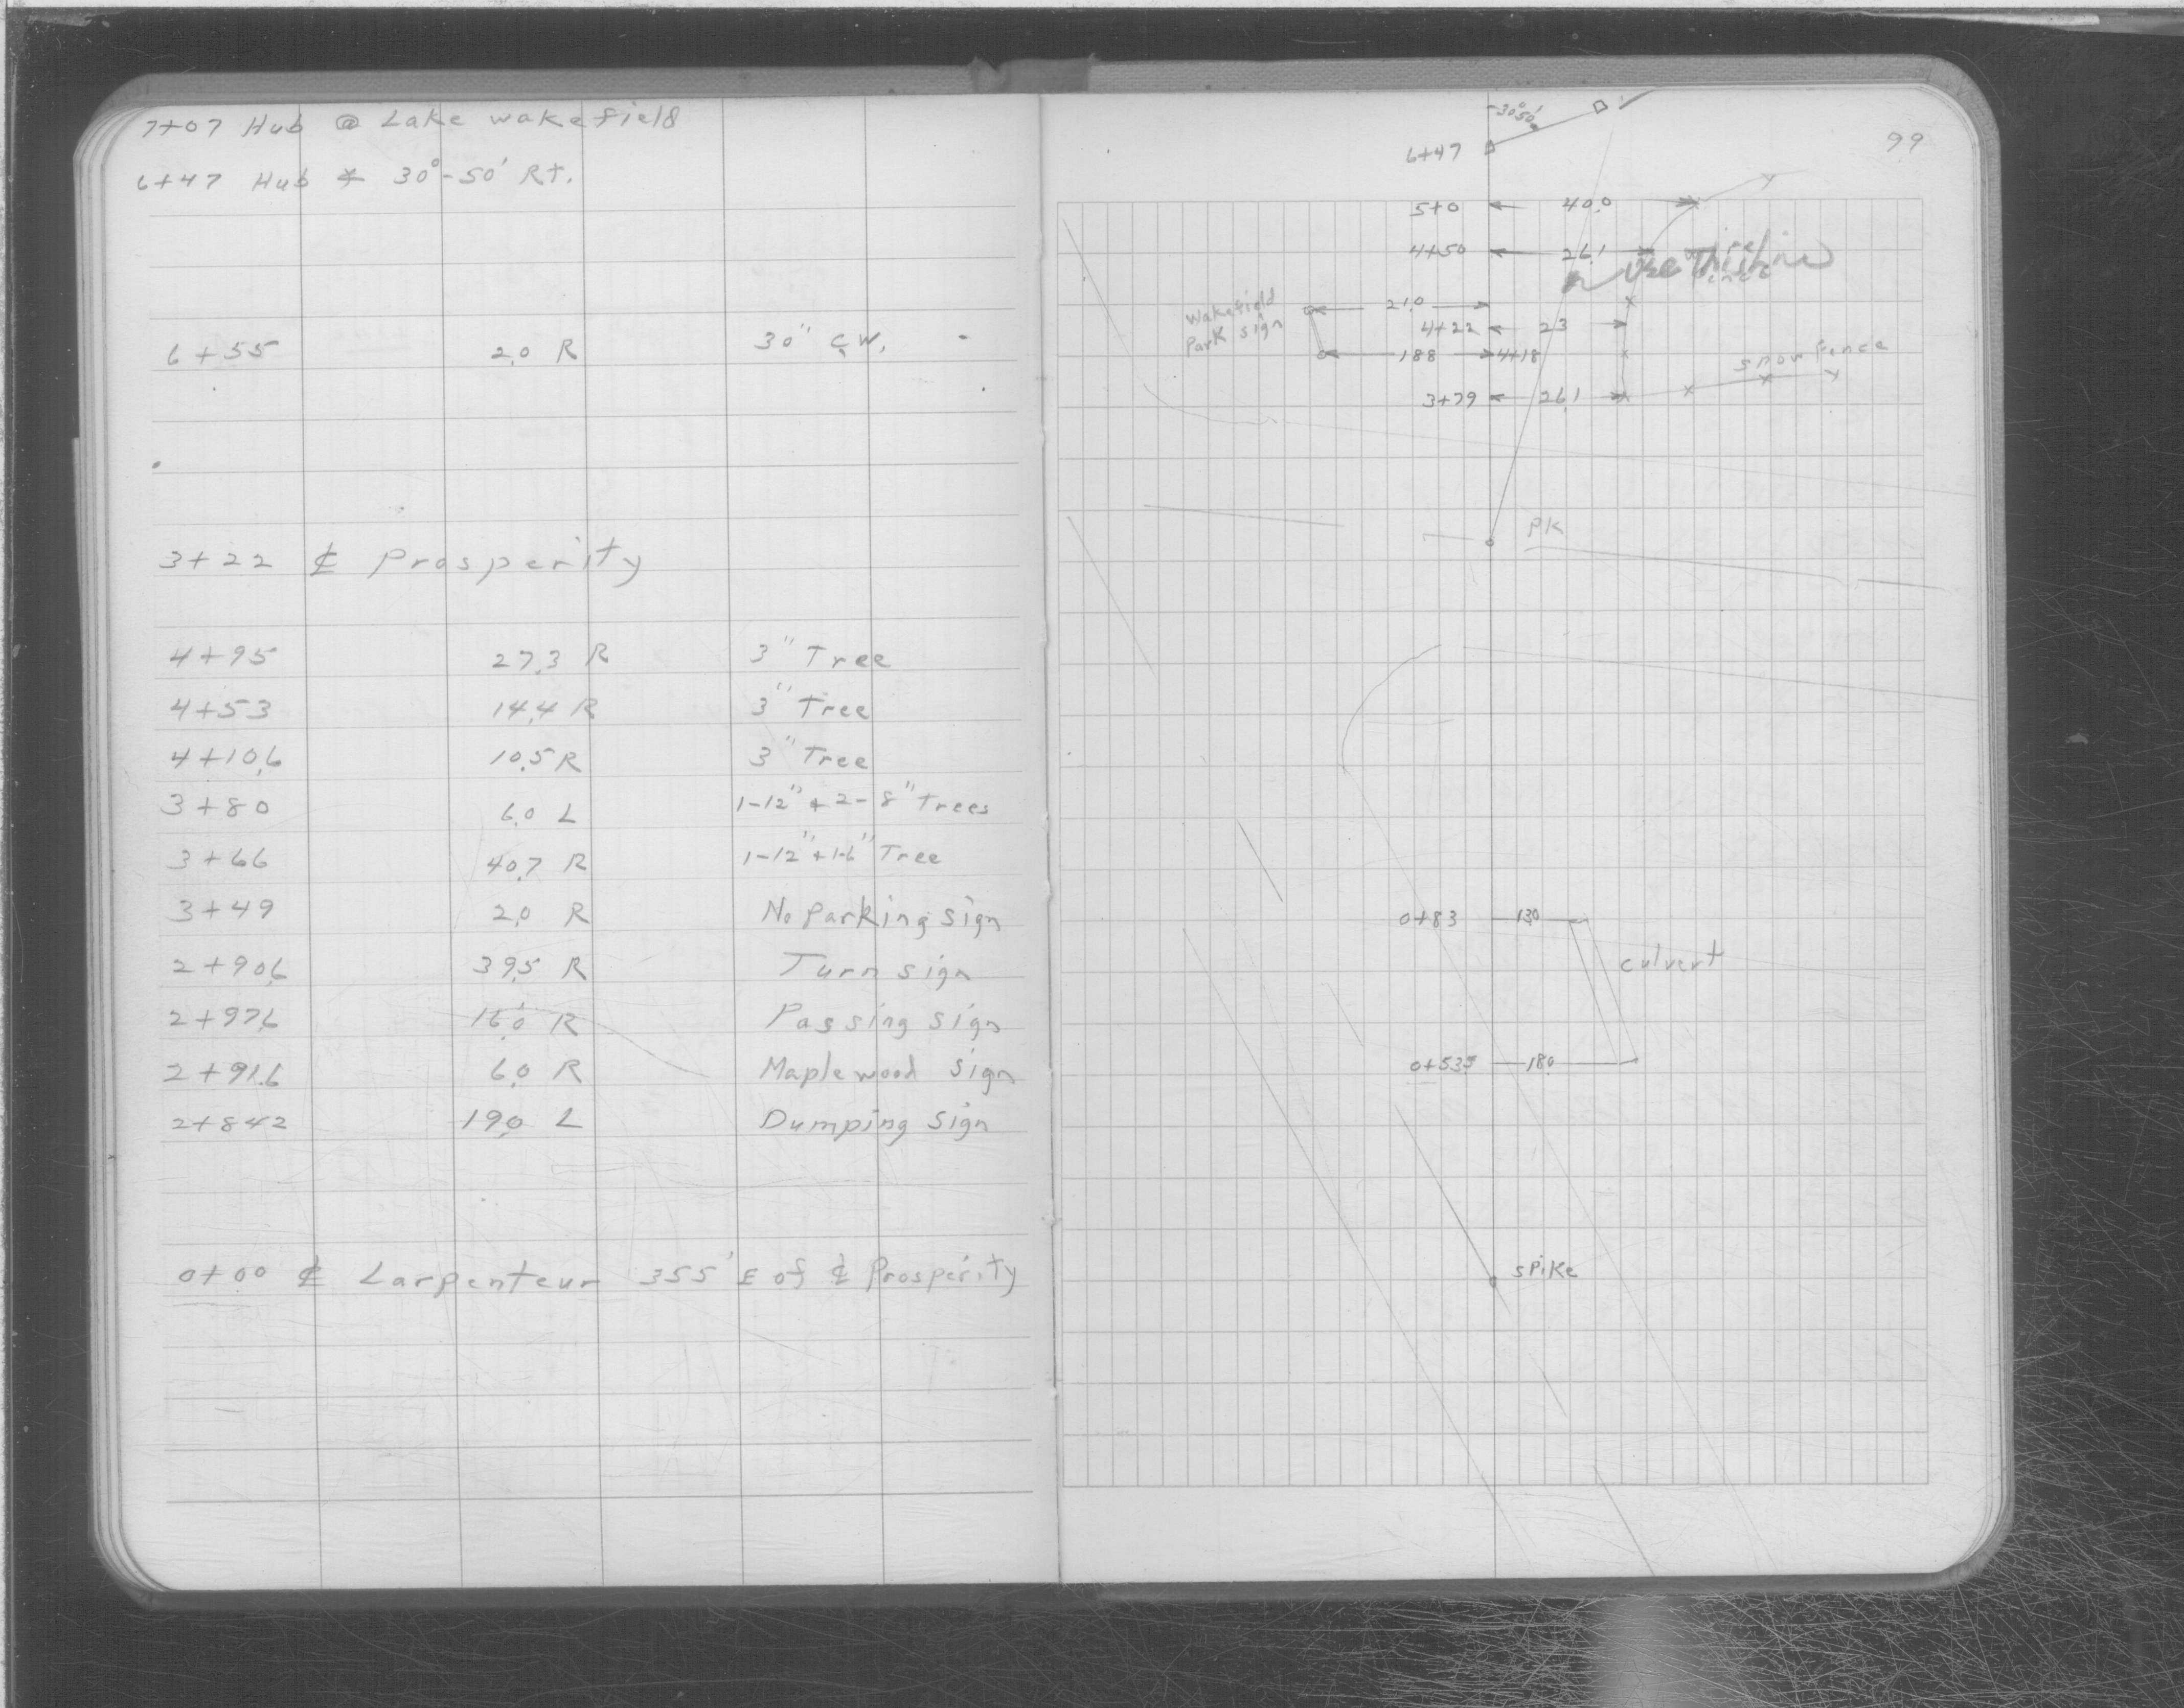 7+07 Hub @ Lake wakefield
6+47 Hub ∡ 30°-50' Rt.
6+55 2.0 R 30" C.W.
3+22 ℄ Prosperity
4+95 27.3 R 3" Tree
4+53 14.4 R 3" Tree
4+10.6 10.5 R 3" Tree
3+80 6.0 L 1-12" + 2-8" Trees
3+66 40.7 R 1-12" + 1-6" Tree
3+49 2.0 R No Parking sign
2+90.6 39.5 R Turn sign
2+97.6 16.0 R Passing sign
2+91.6 6.0 R Maplewood sign
2+84.2 19.0 L Dumping sign
0+00 ℄ Larpenteur 355' E of ℄ Prosperity
99
30°50'
6+47
5+0 40.0
4+50 26.1
Use This line
wire
Fence
Wakefield
Park sign
21.0
4+22 23
18.8 4+18
snow fence
3+79 26.1
PK
0+83 13.0
culvert
0+53.5 18.0
spike